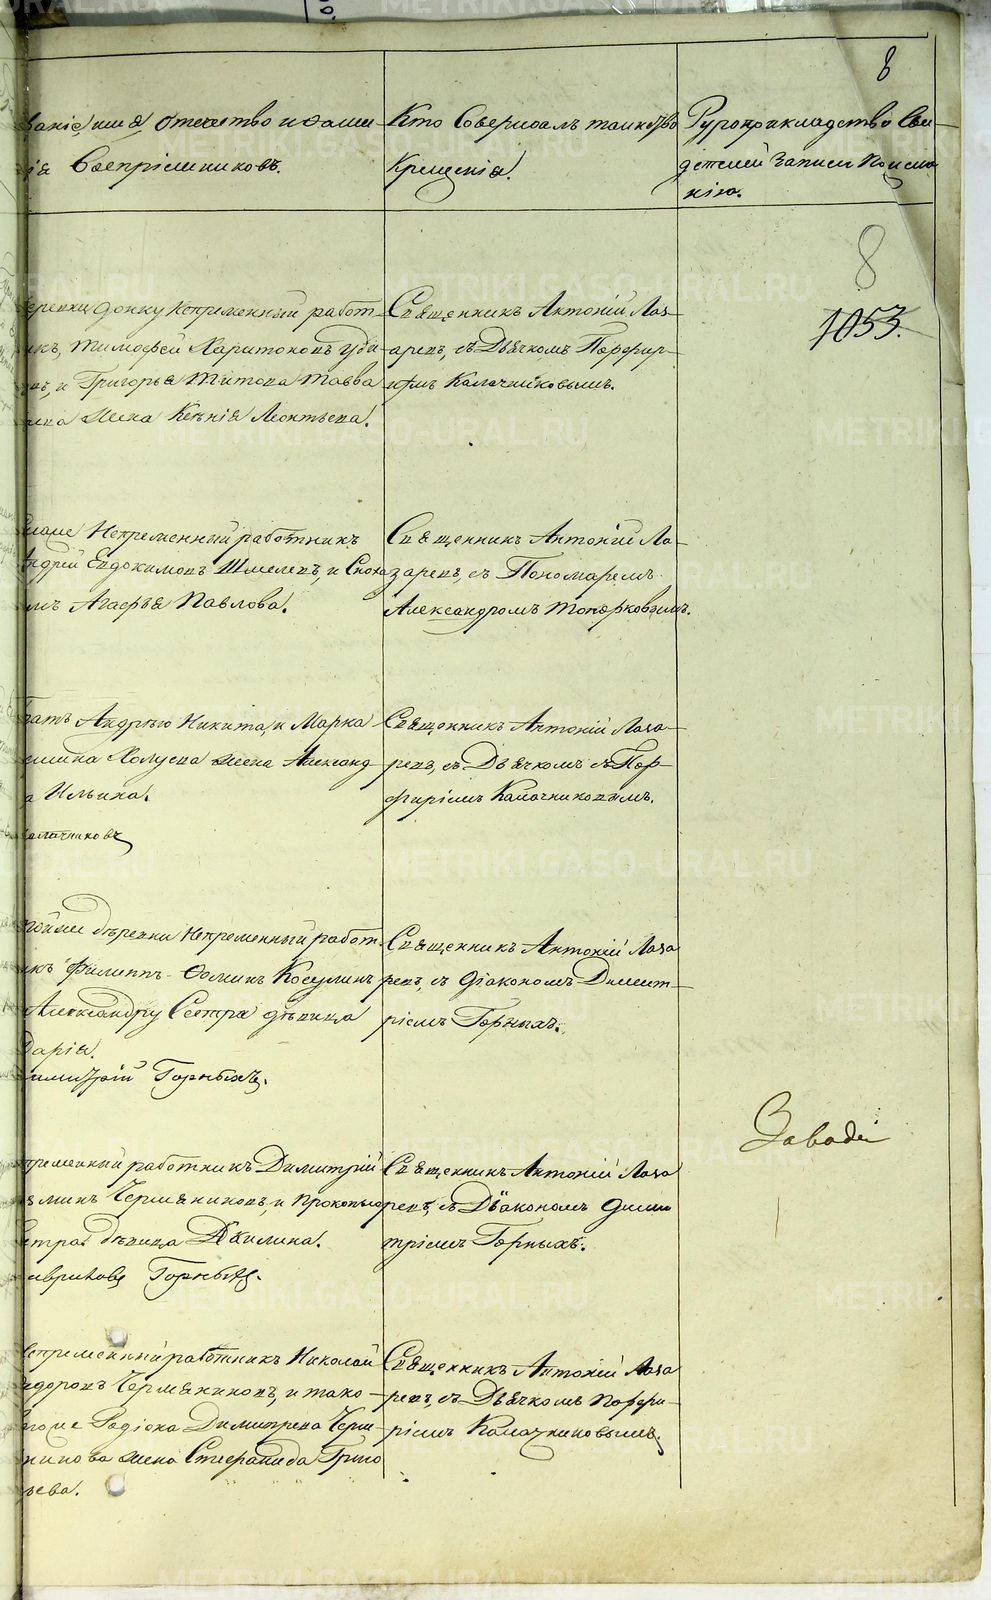 8
Званіе, имя, Отечество и Фами-
лія Воспріемниковъ.
Кто Совершалъ таинство
Крещенія.
Рукоприкладство Сви-
детелей Записи По жела-
нію.
8
1053.
непременный работ-
никъ, Тимофей Харитоновъ
и Григорья Титова
жена Ксенія Леонтьева.
Священникъ Антоній Лаз-
аревъ, съ Дьячкомъ Порфир-
иемъ Калачниковымъ.
Непременный работникъ
Андрей Евдокимовъ Шмелевъ, и Сноха
Агафья Павлова.
Священникъ Антоній Ла-
заревъ, съ Пономаремъ
Александромъ Топорковымъ.
Братъ Андрею Никита, и Марка
Холуева жена Александ
а Ильина.
Калачниковъ
Священникъ Антоній Лаза-
ревъ, съ Дьячкомъ съ Пор-
фиріемъ Калачниковымъ.
деревни Непременный работ-
никъ Филиппъ Фоминъ Косулинъ
Александру Сестра девица
Дарія.
Димитрій Горныхъ.
Священникъ Антоній Лаза
ревъ, съ Діакономъ Димит-
ріемъ Горныхъ.
Непременный работникъ Димитрій
Чермяниновъ, и Прокопью
сестра девица Акилина.
Горныхъ.
Священникъ Антоній Лаза
ревъ, съ Дьякономъ Дими
тріемъ Горныхъ.
Непременный работникъ Николай
Федоровъ Чермяниновъ, и тако-
гоже Родіона Димитрева Черм
янинова жена Стефанида Григо
рьева.
Священникъ Антоній Лаза
ревъ, съ Дьячкомъ Порфи-
ріемъ Калачниковымъ.
METRIKI.GASO-URAL.RU